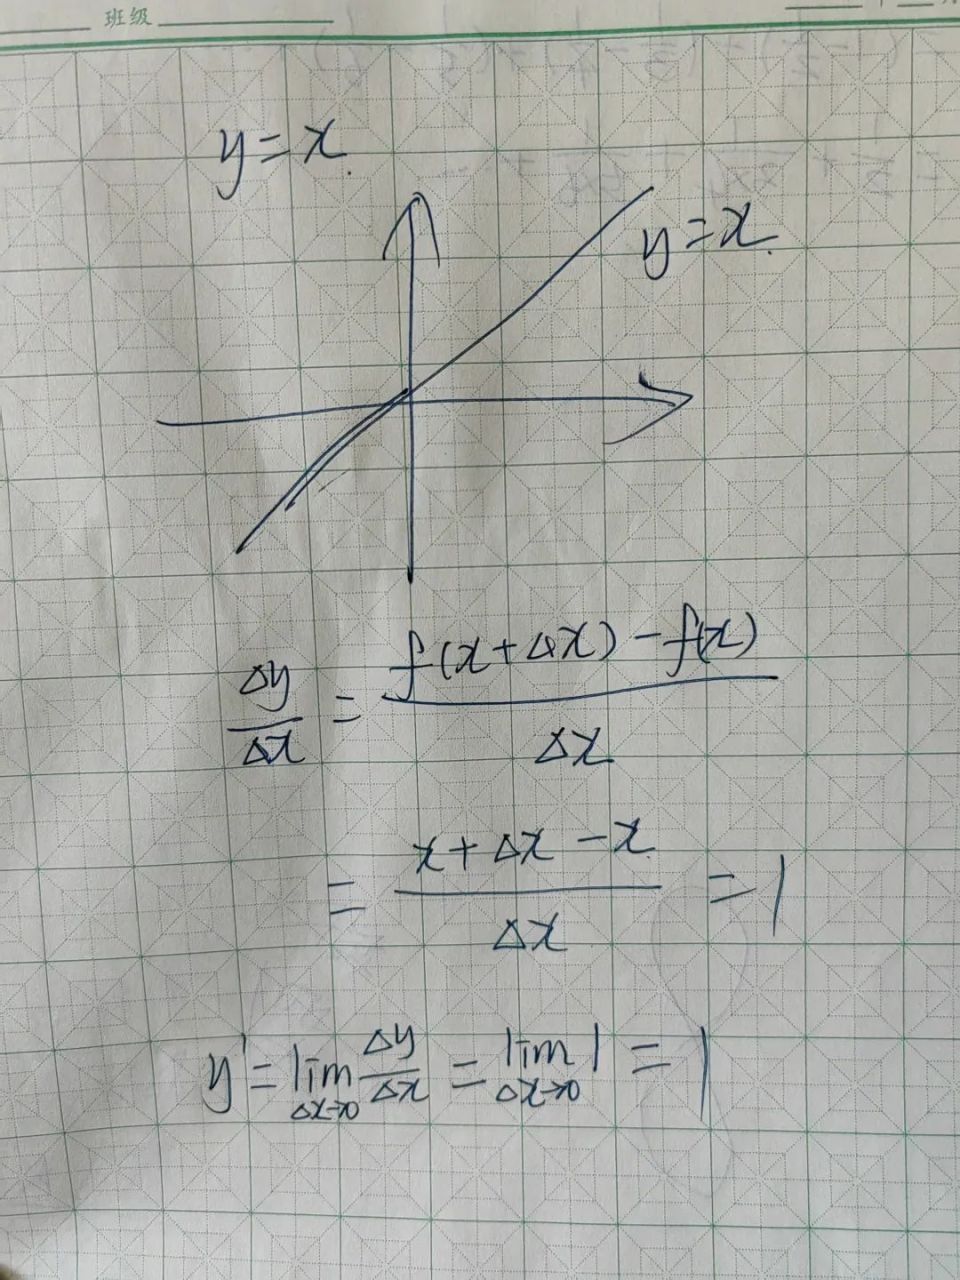 班级
y=x.
y=x.
Δy/Δx = (f(x+Δx)-f(x))/Δx
= (x+Δx-x)/Δx =1
y'=lim Δx→0 Δy/Δx = lim Δx→0 1 = 1